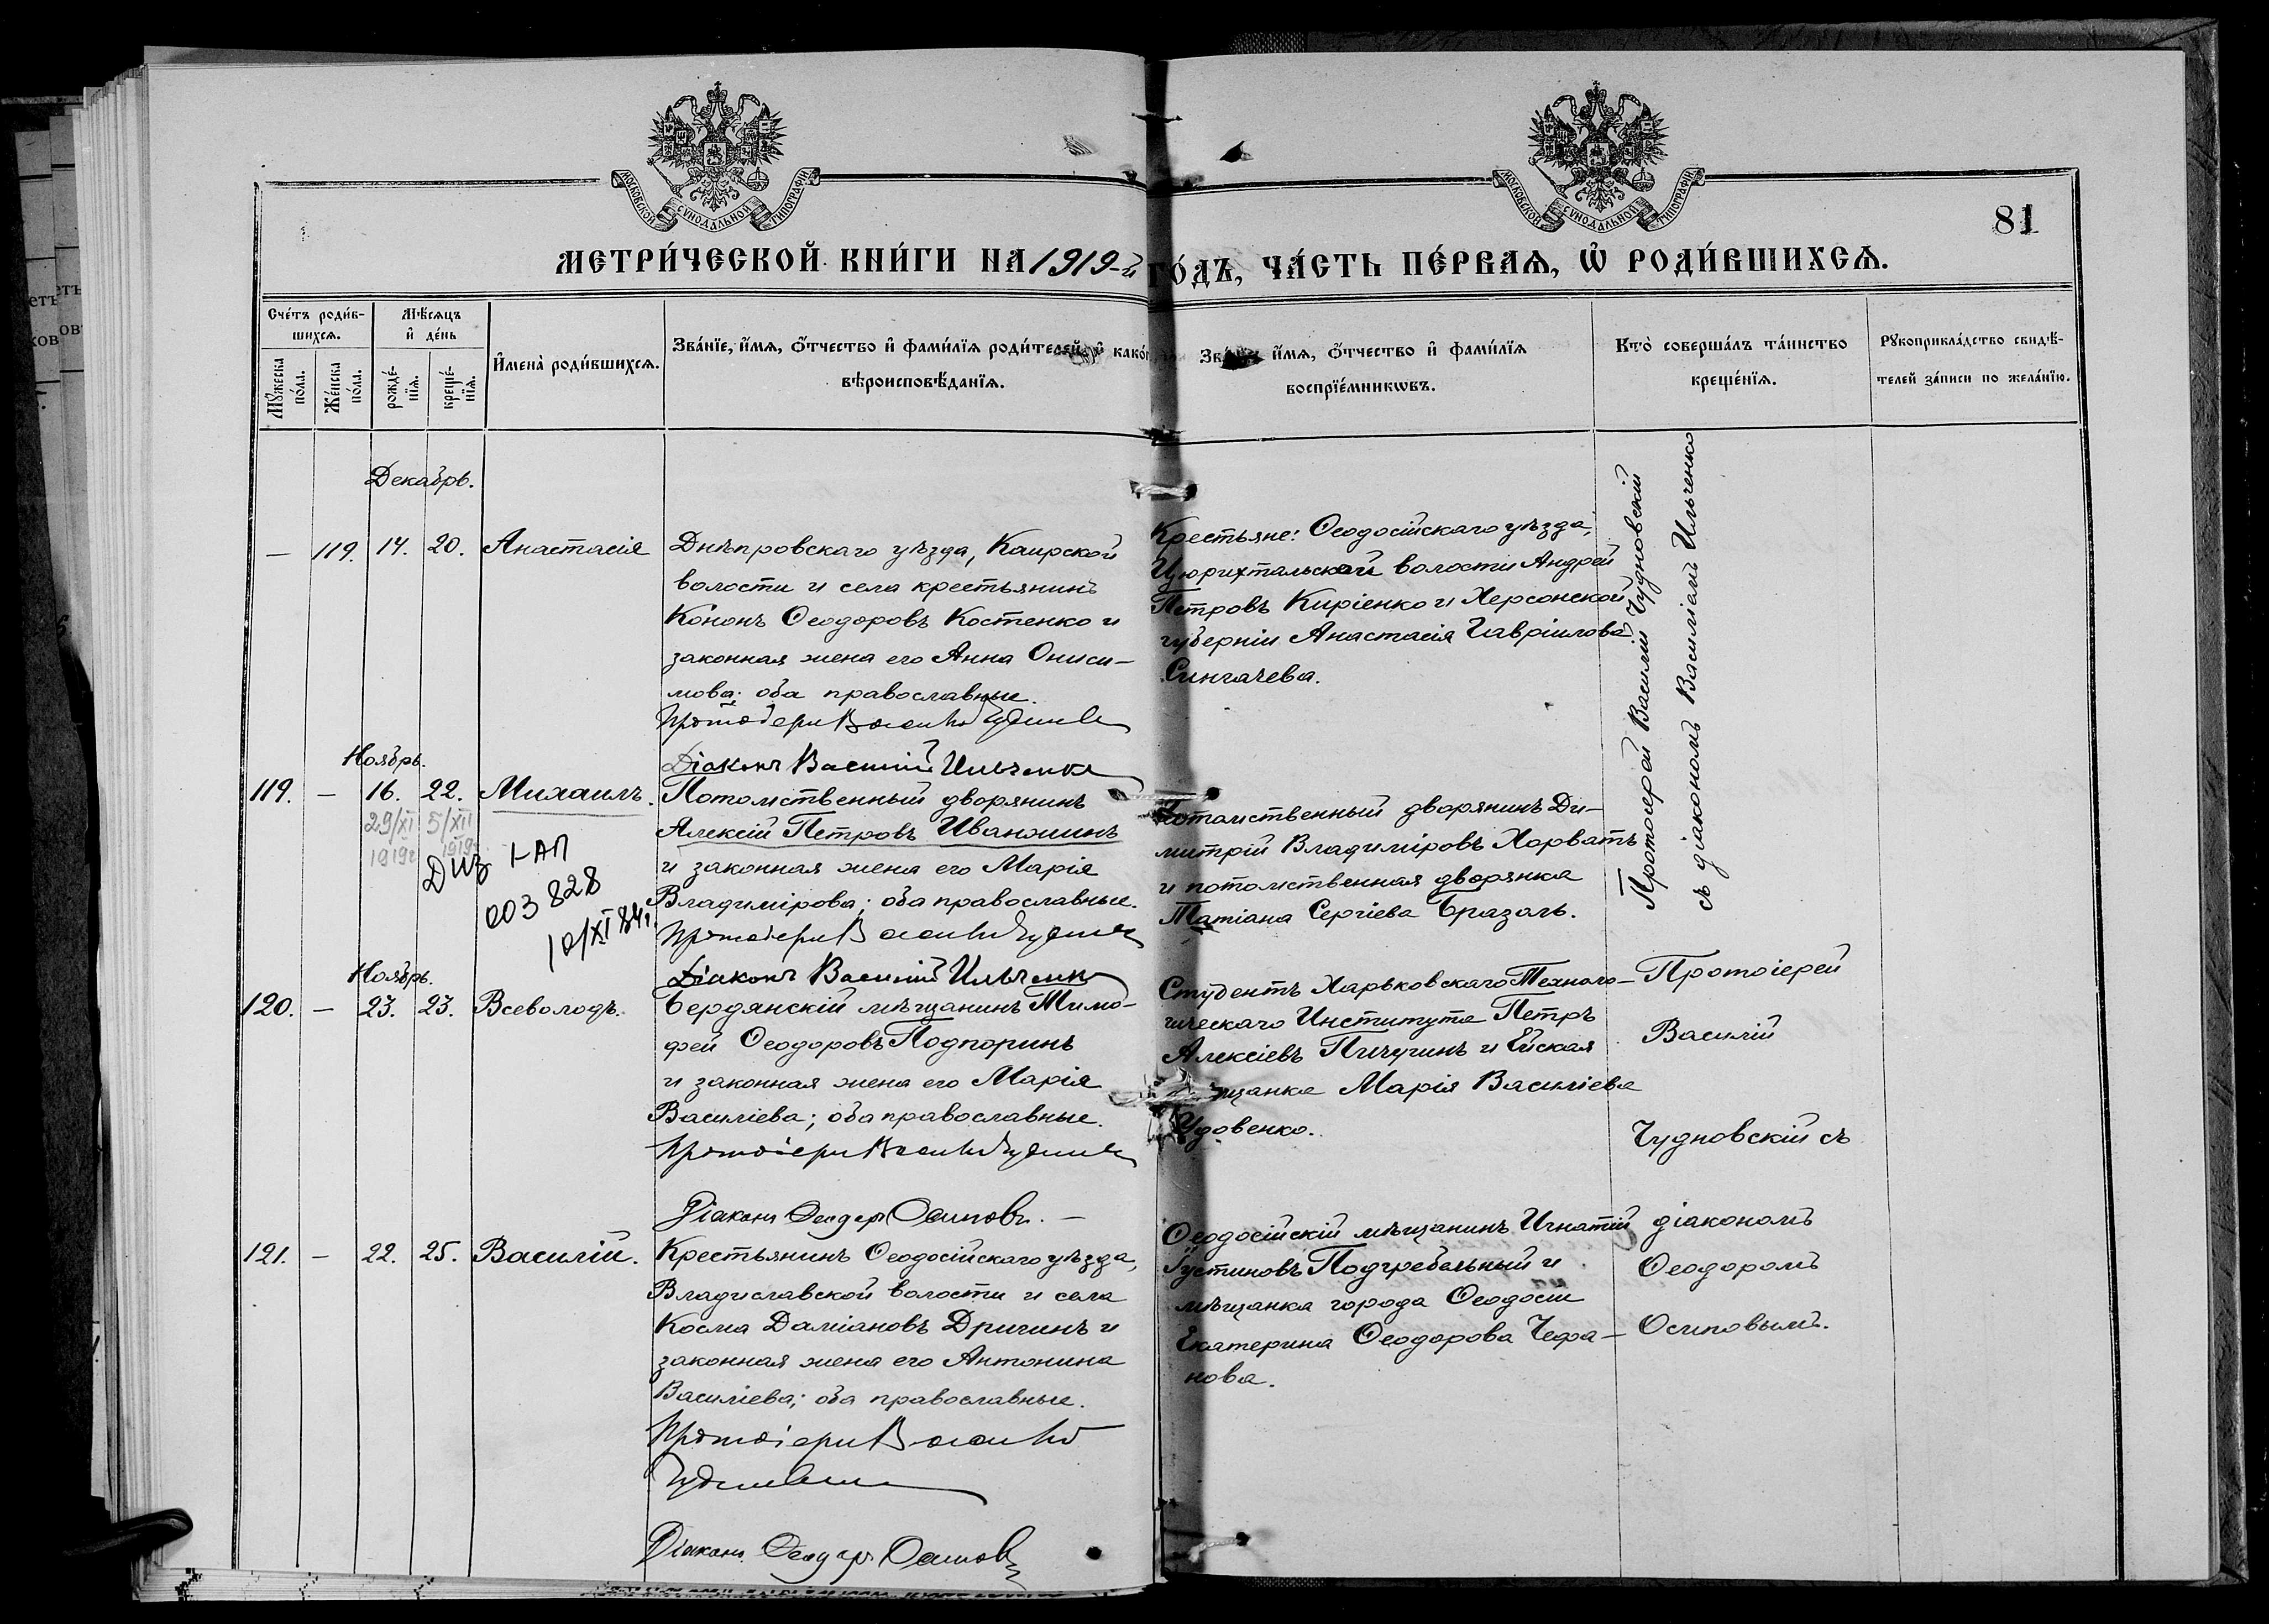 МОСКОВСКОЙ СѴНОДАЛЬНОЙ ТИПОГРАФІИ
МОСКОВСКОЙ СѴНОДАЛЬНОЙ ТИПОГРАФІИ
81
МЕТРИ́ЧЕСКОЙ КНИ́ГИ НА 1919-й ГО́ДЪ, ЧА́СТЬ ПЕ́РВАѦ, Ѡ҆ РОДИ́ВШИХСѦ.
Сче́тъ роди́в-
шихсѧ.
Мꙋ́жеска по́ла.
Же́нска по́ла.
Мѣ́сѧцъ
и҆ де́нь
рожде́-нїѧ.
креще́-нїѧ.
И҆мена̀ роди́вшихсѧ.
Зва́нїе, и҆́мѧ, ѻ҆́тчество и҆ фами́лїѧ роди́телей, и҆ како́
вѣроисповѣ́данїѧ.
и҆́мѧ, ѻ҆́тчество и҆ фами́лїѧ
воспрїе́мникѡвъ.
Кто̀ соверша́лъ та́инство
креще́нїѧ.
Рꙋкоприкла́дство свидѣ́-
телей за́писи по жела́нїю.
Декабрь.
— 119. 14. 20. Анастасія
Днѣпровскаго уѣзда, Каирской
волости и села крестьянинъ
Кононъ Ѳеодоровъ Костенко и
законная жена его Анна Ониси-
мова; оба православные.
Протоіерей Василій Чудновскій
Діаконъ Василій Ильченко
Крестьяне: Ѳеодосійскаго уѣзда,
Цюрихтальской волости Андрей
Петровъ Киріенко и Херсонской
губерніи Анастасія Гавріилова
Сингачева.
Протоіерей Василій Чудновскій
съ діакономъ Василіемъ Ильченко
Ноябрь.
119. — 16. 22. Михаилъ.
29/XI 5/XII
1919г 1919г
I-АП
003828
10/XI 84г.
Потомственный дворянинъ
Алексій Петровъ Иванжинъ
и законная жена его Марія
Владимірова; оба православные.
Протоіерей Василій Чудновскій
Діаконъ Василій Ильченко
Потомственный дворянинъ Ди-
митрій Владиміровъ Хорватъ
и потомственная дворянка
Татіана Сергіева Бразоль.
Ноябрь.
120. — 23. 23. Всеволодъ.
Бердянскій мѣщанинъ Тимо-
фей Ѳеодоровъ Подпоринъ
и законная жена его Марія
Василіева; оба православные.
Протоіерей Василій Чудновскій
Діаконъ Ѳеодоръ Осиповъ. —
Студентъ Харьковскаго Техноло-
гическаго Института Петръ
Алексіевъ Пичугинъ и Ейская
мѣщанка Марія Василіева
Удовенко.
Протоіерей
Василій
Чудновскій съ
діакономъ
Ѳеодоромъ
Осиповымъ.
121. — 22. 25. Василій.
Крестьянинъ Ѳеодосійскаго уѣзда,
Владиславской волости и села
Косма Даміановъ Дричинъ и
законная жена его Антонина
Василіева; оба православные.
Протоіерей Василій
Чудновскій
Діаконъ Ѳеодоръ Осиповъ
Ѳеодосійскій мѣщанинъ Игнатій
Іустиновъ Подгребельный и
мѣщанка города Ѳеодосіи
Екатерина Ѳеодорова Чефра-
нова.